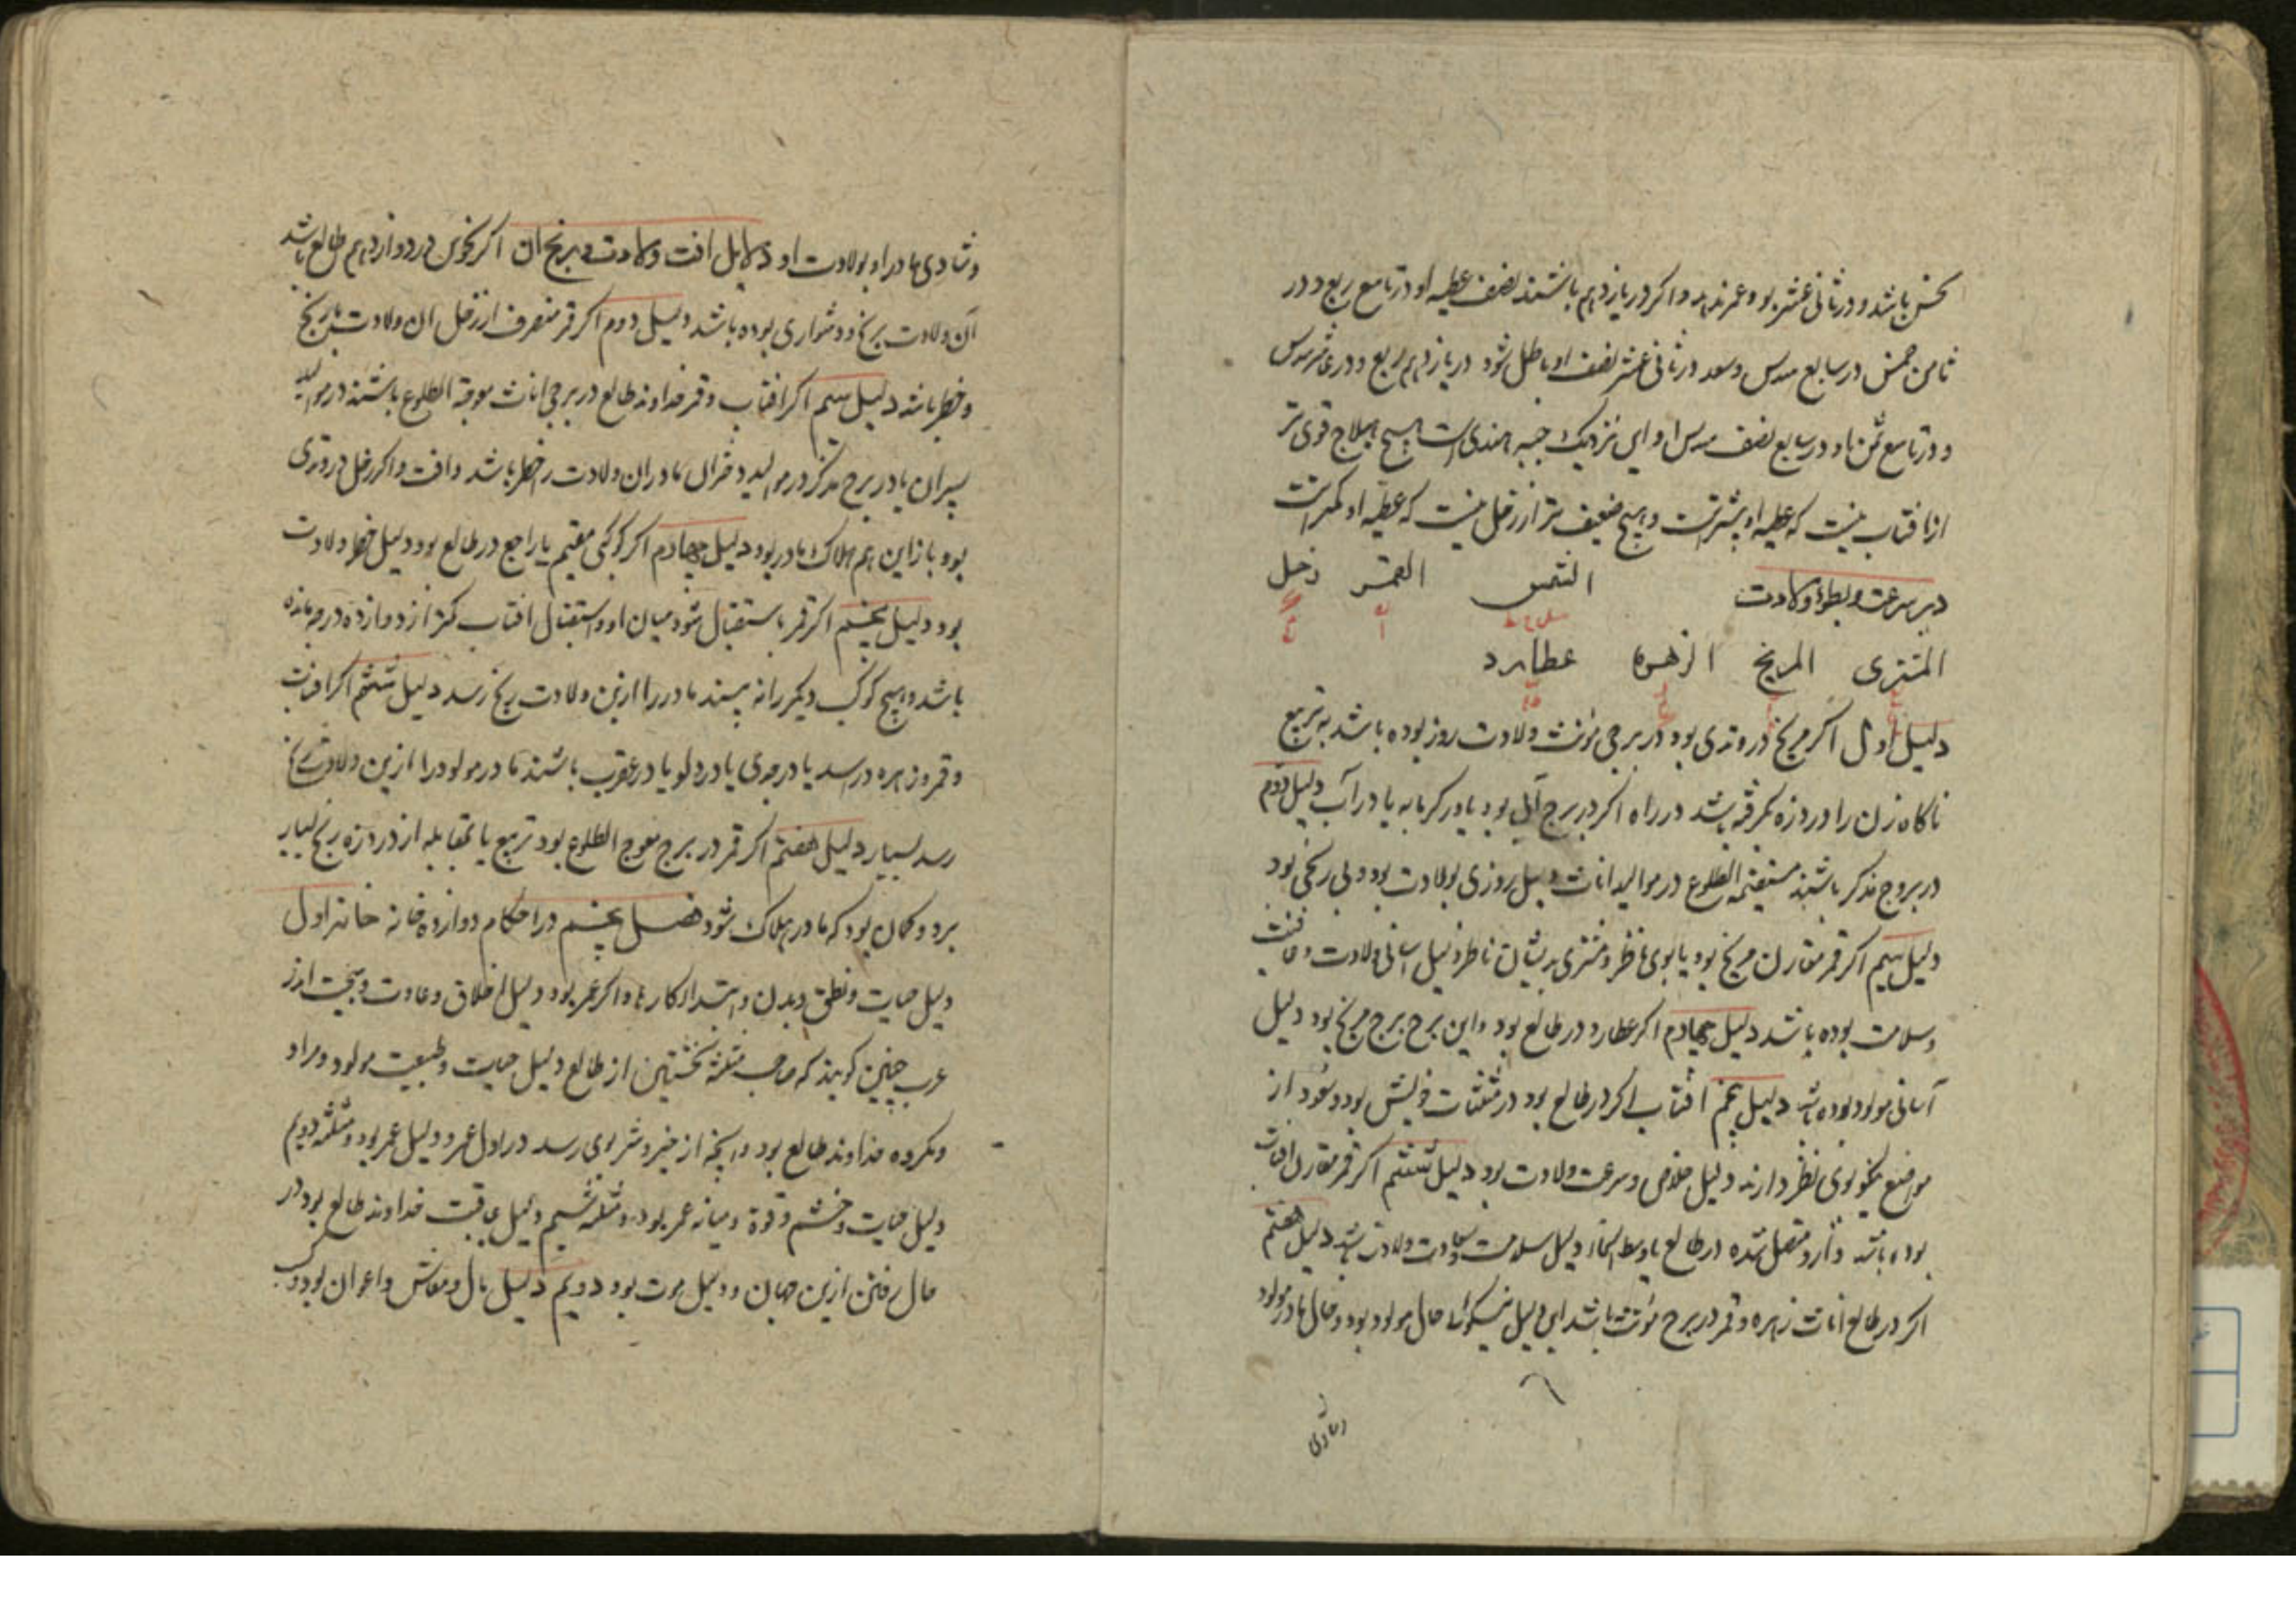 نحس باشد و در ثانی عشر بود و عمر ندهد و اکر در یازدهم باشند نصف عطیه او در تاسع ربع و در
ثامن خمس در سابع سدس و سعد در ثانی عشر نصف او باطل شود در یازدهم ربع و در عاشر سدس
و در تاسع ثمن و در سابع نصف سدس او این نزدیک هندی است هیچ هیلاج قوی تر
از افتاب نیست که عطیه او بیشترست و هیچ ضعیف تر از زحل نیست که عطیه او کمترست
در سرعت و بطوء ولادت الشمس القمر زحل
المشتری المریخ الزهره عطارد
دلیل اول اکر مریخ در وتدی بود در برجی مؤنث ولادت روز بوده باشد به تربیع
ناکاه زن را درد زه بکرفته باشد در راه اکر در برج آبی بود یا در کرمابه یا در آب دلیل دوم
در بروج مذکر باشند مستقیمة الطلوع در موالید اناث دلیل روزی بولادت بود و بی رنجی بود
دلیل سیم اکر قمر مقارن مریخ بود یا بوی ناظر و مشتری بدیشان ناظر دلیل اسانی ولادت و عافیت
و سلامت بوده باشد دلیل چهارم اکر عطارد در طالع بود و این برج برج مریخ بود دلیل
آسانی مولود بوده باشد دلیل پنجم افتاب اکر در طالع بود در مثلثات خویش بود و سعود از
مواضع نیکو بوی نظر دارند دلیل خلاص و سرعت ولادت بود دلیل ششم اکر قمر مقارن افتاب
بوده باشد و متصل شده در طالع یا وسط السماء دلیل سلامت و سعادت ولادت باشد دلیل هفتم
اکر در طالع اناث زهره و قمر در برج مؤنث باشد این دلیل نیکوئی حال مولود بود و حال مادر مولود
و شادی
و شادی مادر او بولادت او دلایل افت ولادت و رنج ان اکر نحوس در دوازدهم طالع باشد
آن ولادت برنج و دشواری بوده باشد دلیل دوم اکر قمر منصرف از زحل ان ولادت با رنج
و خطر باشد دلیل سیم اکر افتاب و قمر خداوند طالع در برجی اناث معوجة الطلوع باشند در موالید
پسران یا در برج مذکر در موالید دختران مادران ولادت خطر باشد و افت و اکر زحل در وتدی
بود باز این هم هلاک مادر بود دلیل چهارم اکر کوکبی مقیم یا راجع در طالع بود دلیل خطر ولادت
بود دلیل پنجم اکر قمر باستقبال شود میان او و استقبال افتاب کمتر از دوازده درجه مانده
باشد و هیچ کوکب دیکر را نه بیند مادر را ازین ولادت رنج رسد دلیل ششم اکر افتاب
و قمر و زهره در اسد یا در جدی یا در دلو یا در عقرب باشند مادر مولود را ازین ولادت رنج
رسد بسیار دلیل هفتم اکر قمر در برج معوج الطلوع بود تربیع یا بمقابله از درد زه رنج بسیار
برد و کمان بود که مادر هلاک شود فصل پنجم در احکام دوازده خانه خانه اول
دلیل حیات و نطق و بدن و ابتداء کارها و اکر عمر بود دلیل اخلاق و عادت و
عرب چنین کویند که صاحب مثلثه نخستین از طالع دلیل حیات و طبیعت مولود و مراد
و مکروه خداوند طالع بود و انچه از خیر و شر بوی رسد در اول عمر و دلیل عمر بود و مثلثه دویم
دلیل حیات و خشم و قوة و میانه عمر بود و مثلثه سیم دلیل عاقبت خداوند طالع بود در
حال رفتن ازین جهان و دلیل موت بود دویم دلیل مال و معاش و اعوان بود و کسب